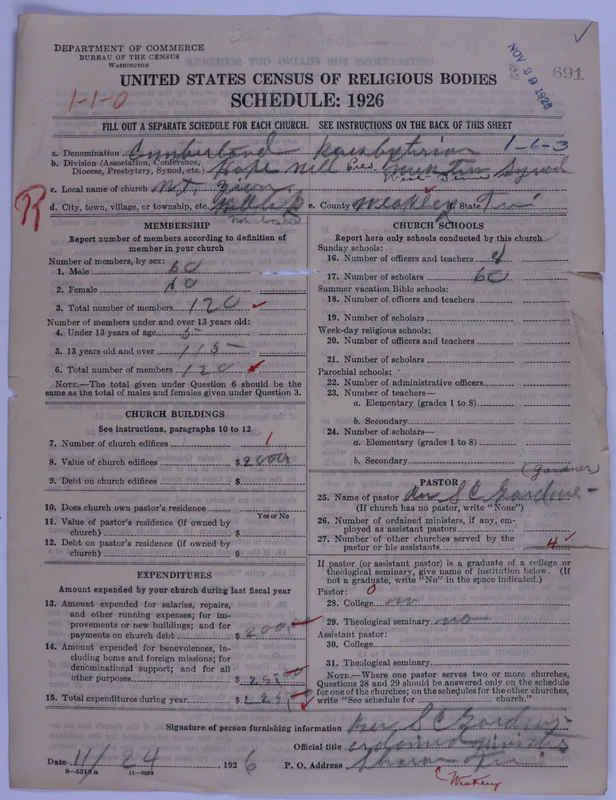 DEPARTMENT OF COMMERCE
BUREAU OF THE CENSUS
WASHINGTON
NOV 29 1926
691
UNITED STATES CENSUS OF RELIGIOUS BODIES
1-1-0
SCHEDULE: 1926
FILL OUT A SEPARATE SCHEDULE FOR EACH CHURCH. SEE INSTRUCTIONS ON THE BACK OF THIS SHEET
a. Denomination Cumberland Presbyterian 1-6-3
b. Division (Association, Conference, Diocese, Presbytery, Synod, etc.) Hope Hill Pres. Synod
West Tenn
c. Local name of church Mt. Zion
R
d. City, town, village, or township, etc. e. County Weakley f. State
Not located
MEMBERSHIP
Report number of members according to definition of member in your church
Number of members, by sex:
1. Male 60
2. Female 60
3. Total number of members 120
Number of members under and over 13 years old:
4. Under 13 years of age 5
5. 13 years old and over 115
6. Total number of members 120
NOTE.—The total given under Question 6 should be the same as the total of males and females given under Question 3.
CHURCH BUILDINGS
See instructions, paragraphs 10 to 12
7. Number of church edifices 1
8. Value of church edifices $ 2000
9. Debt on church edifices $
10. Does church own pastor's residence
Yes or No
11. Value of pastor's residence (if owned by church) $
12. Debt on pastor's residence (if owned by church) $
EXPENDITURES
Amount expended by your church during last fiscal year
13. Amount expended for salaries, repairs, and other running expenses; for improvements or new buildings; and for payments on church debt $ 200
14. Amount expended for benevolences, including home and foreign missions; for denominational support; and for all other purposes $
15. Total expenditures during year $
CHURCH SCHOOLS
Report here only schools conducted by this church
Sunday schools:
16. Number of officers and teachers
17. Number of scholars 60
Summer vacation Bible schools:
18. Number of officers and teachers
19. Number of scholars
Week-day religious schools:
20. Number of officers and teachers
21. Number of scholars
Parochial schools:
22. Number of administrative officers
23. Number of teachers—
a. Elementary (grades 1 to 8)
b. Secondary
24. Number of scholars—
a. Elementary (grades 1 to 8)
b. Secondary
(Gardner)
PASTOR
25. Name of pastor Rev S C Gardner
(If church has no pastor, write "None")
26. Number of ordained ministers, if any, employed as assistant pastors
27. Number of other churches served by the pastor or his assistants 4
If pastor (or assistant pastor) is a graduate of a college or theological seminary, give name of institution below. (If not a graduate, write "No" in the space indicated.)
Pastor: 0
28. College no
29. Theological seminary no
Assistant pastor:
30. College
31. Theological seminary
NOTE.—Where one pastor serves two or more churches, Questions 28 and 29 should be answered only on the schedule for one of the churches; on the schedules for the other churches, write "See schedule for church."
Signature of person furnishing information Rev S C Gardner
Official title ordained minister
Date 11/24 1926 P. O. Address Sharon
8-5319a 11-9084
Weakley